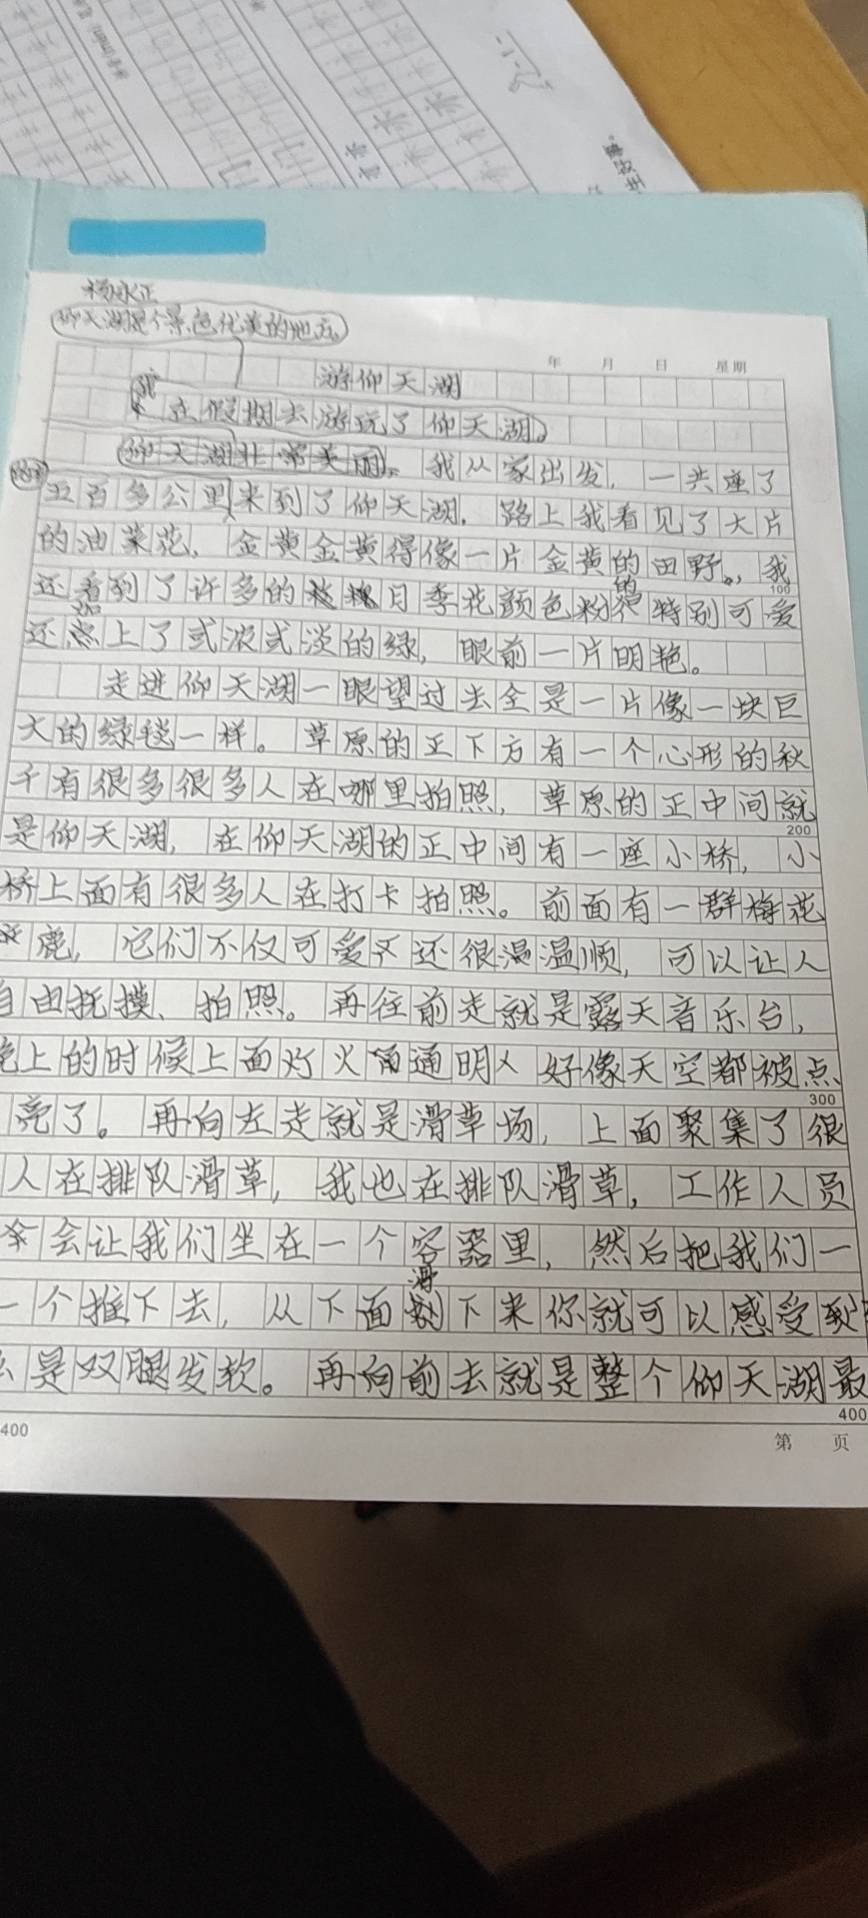 杨永正
仰天湖是个景色优美的地方。
年 月 日 星期
游仰天湖
我在假期去游玩了仰天湖。
仰天湖非常美丽。我从家出发,一共座了
五百多公里来到了仰天湖,路上我看见了大片
的油菜花,金黄金黄得像一片金黄的田野。,我
100
还看到了许多的月季花颜色粉的特别可爱
还点上了或浓或淡的绿,眼前一片明艳。
走进仰天湖一眼望过去全是一片像一块巨
大的绿毯一样。草原的正下方有一个心形的秋
千有很多很多人在哪里拍照,草原的正中间就
200
是仰天湖,在仰天湖的正中间有一座小桥,小
桥上面有很多人在打卡拍照。前面有一群梅花
鹿,它们不仅可爱还很温顺,可以让人
自由抚摸、拍照。再往前走就是露天音乐台,
晚上的时候上面灯火通明 好像天空都被点
300
亮了。再向左走就是滑草场,上面聚集了很
人在排队滑草,我也在排队滑草,工作人员
会让我们坐在一个容器里,然后把我们一
一个推下去,从下面滑下来你就可以感受到
是双腿发软。再向前去就是整个仰天湖最
400
400
第 页